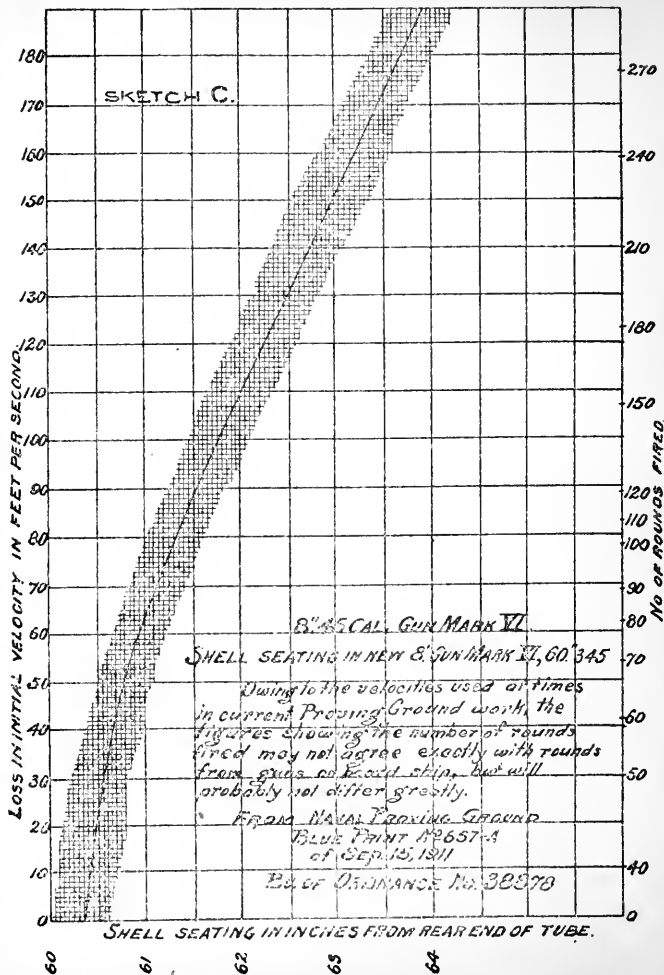 SKETCH C.
LOSS IN INITIAL VELOCITY IN FEET PER SECOND.
180
170
160
150
140
130
120
110
100
90
80
70
60
50
40
30
20
10
0
270
240
210
180
150
120
110
100
90
80
70
60
50
40
0
NO OF ROUNDS FIRED.
8"45 CAL. GUN MARK VI
SHELL SEATING IN NEW 8" GUN MARK VI, 60."345
Owing to the velocities used at times
in current Proving Ground work, the
figures showing the number of rounds
fired may not agree exactly with rounds
from guns on board ship, but will
probably not differ greatly.
FROM NAVAL PROVING GROUND
BLUE PRINT Nº 657-A
of SEP. 15, 1911
BU. OF ORDNANCE No. 38878
SHELL SEATING IN INCHES FROM REAR END OF TUBE.
60
61
62
63
64